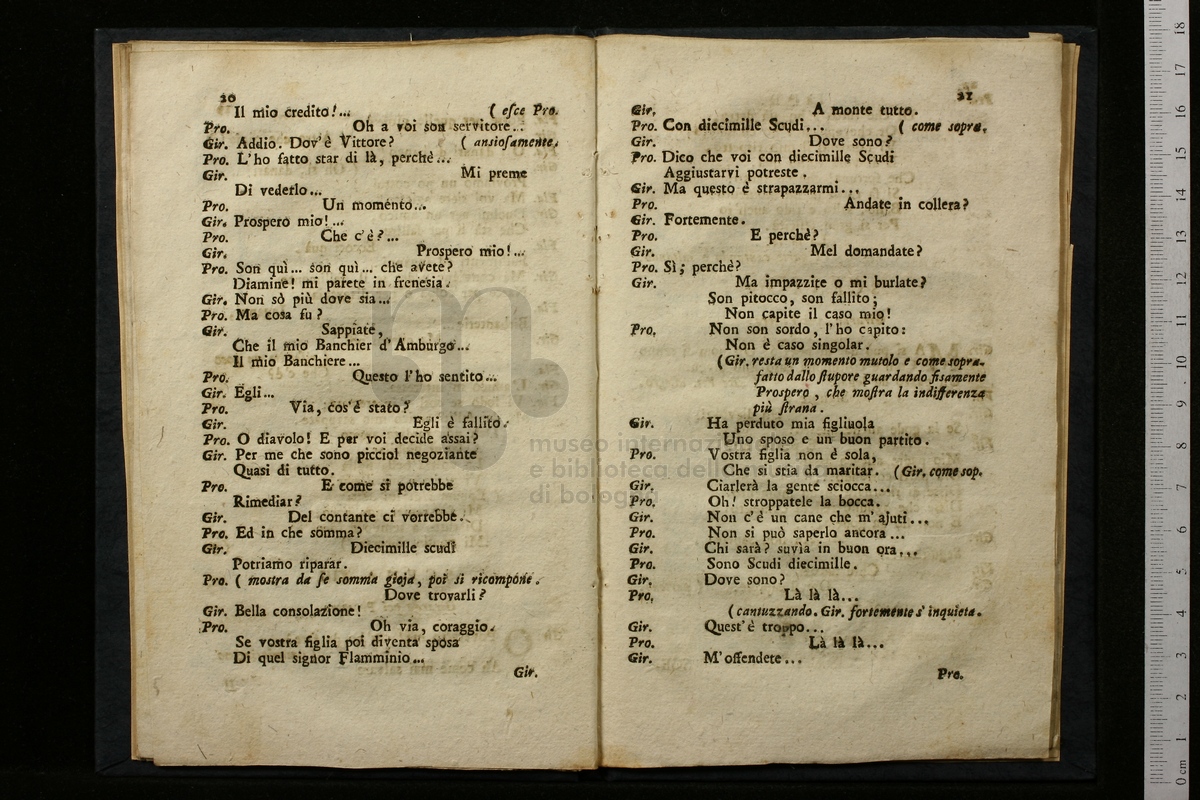 20
Il mio credito!... ( esce Pro.
Pro. Oh a voi son servitore...
Gir. Addio. Dov'è Vittore? ( ansiosamente.
Pro. L'ho fatto star di là, perchè...
Gir. Mi preme
Di vederlo...
Pro. Un momento...
Gir. Prospero mio!...
Pro. Che c'è?...
Gir. Prospero mio!...
Pro. Son quì... son quì... che avete?
Diamine! mi parete in frenesia.
Gir. Non sò più dove sia...
Pro. Ma cosa fu?
Gir. Sappiate,
Che il mio Banchier d'Amburgo...
Il mio Banchiere...
Pro. Questo l'ho sentito...
Gir. Egli...
Pro. Via, cos'è stato?
Gir. Egli è fallito.
Pro. O diavolo! E per voi decide assai?
Gir. Per me che sono picciol negoziante
Quasi di tutto.
Pro. E come si potrebbe
Rimediar?
Gir. Del contante ci vorrebbe.
Pro. Ed in che somma?
Gir. Diecimille scudi
Potriamo riparar.
Pro. ( mostra da se somma gioja, poi si ricompone.
Dove trovarli?
Gir. Bella consolazione!
Pro. Oh via, coraggio.
Se vostra figlia poi diventa sposa
Di quel signor Flamminio...
Gir.
21
Gir. A monte tutto.
Pro. Con diecimille Scudi... ( come sopra.
Gir. Dove sono?
Pro. Dico che voi con diecimille Scudi
Aggiustarvi potreste.
Gir. Ma questo è strapazzarmi...
Pro. Andate in collera?
Gir. Fortemente.
Pro. E perchè?
Gir. Mel domandate?
Pro. Sì; perchè?
Gir. Ma impazzite o mi burlate?
Son pitocco, son fallito;
Non capite il caso mio!
Pro. Non son sordo, l'ho capito:
Non è caso singolar.
(Gir. resta un momento mutolo e come sopra.
fatto dallo stupore guardando fisamente
Prospero, che mostra la indifferenza
più strana.
Gir. Ha perduto mia figliuola
Uno sposo e un buon partito.
Pro. Vostra figlia non è sola,
Che si stia da maritar. (Gir. come sop.
Gir. Ciarlerà la gente sciocca...
Pro. Oh! stroppatele la bocca.
Gir. Non c'è un cane che m'ajuti...
Pro. Non si può saperlo ancora...
Gir. Chi sarà? suvìa in buon ora...
Pro. Sono Scudi diecimille.
Gir. Dove sono?
Pro. Là là là...
(cantuzzando. Gir. fortemente s'inquieta.
Gir. Quest'è troppo...
Pro. Là là là...
Gir. M'offendete...
Pro.
museo internazio
e biblioteca dell
di bologna
0 cm 1 2 3 4 5 6 7 8 9 10 11 12 13 14 15 16 17 18